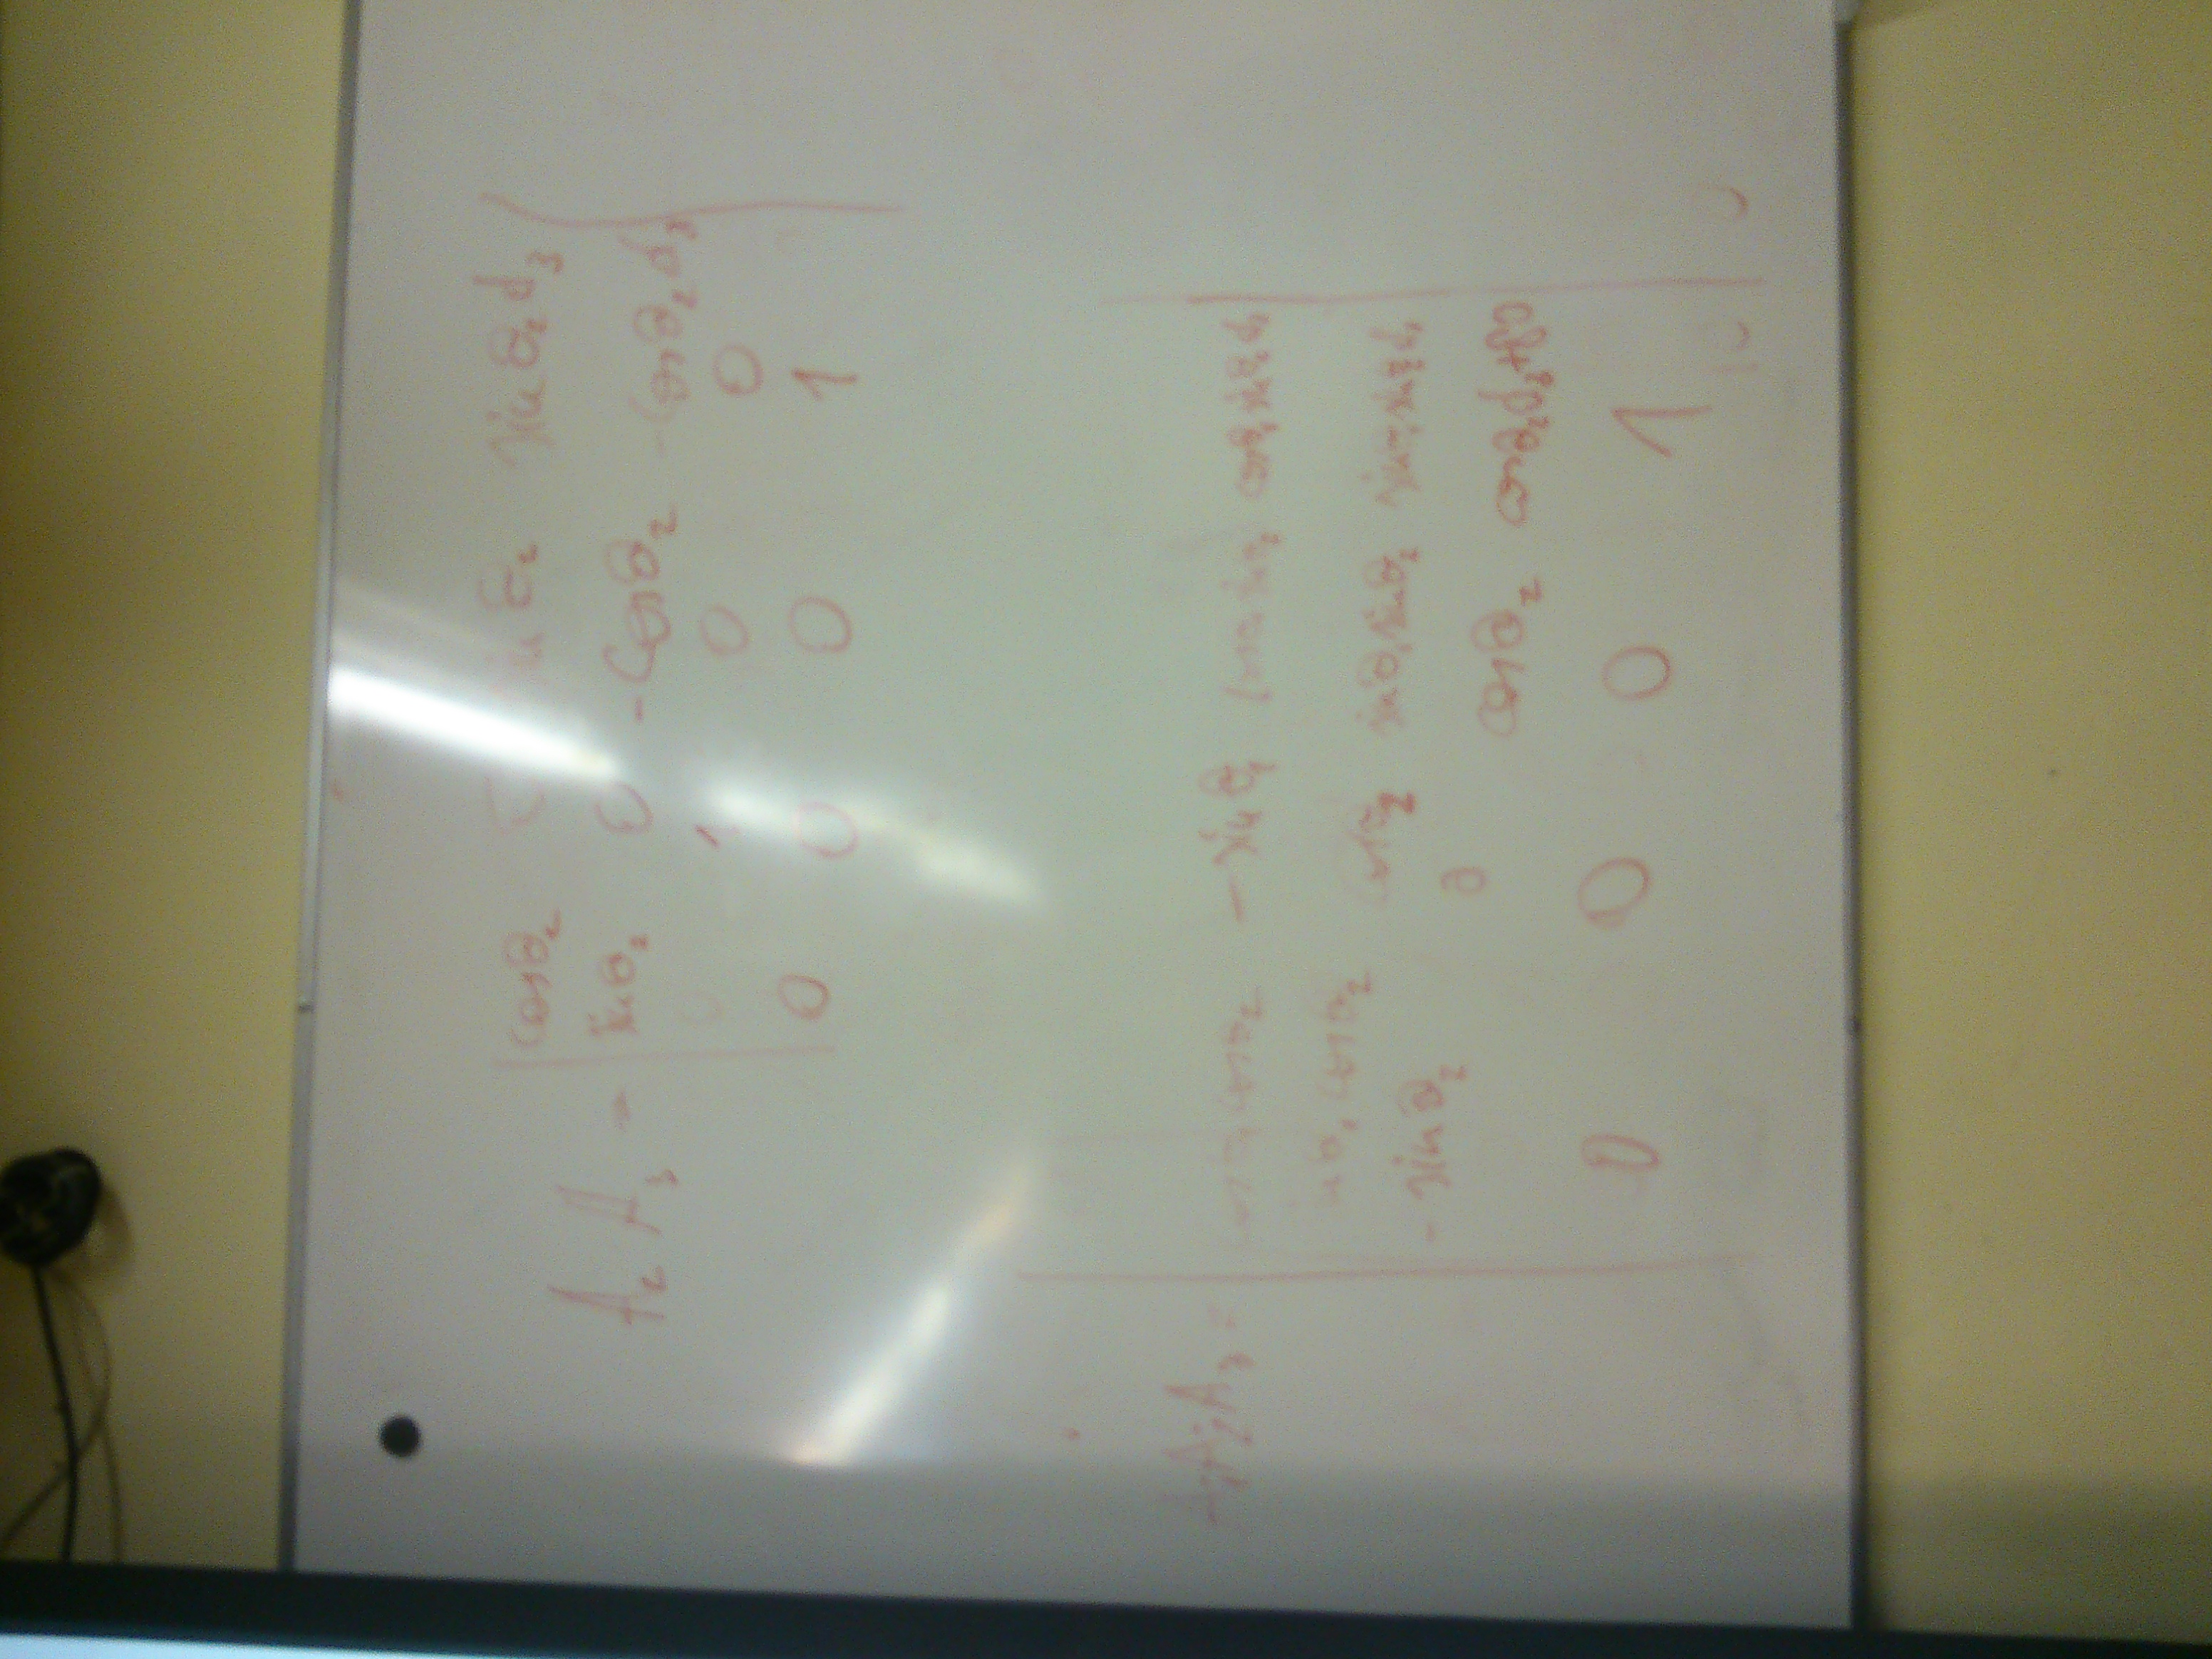 A₂ A₃ = | cosθ₂ sinθ₂ sinθ₂d₃ |
sinθ₂ 0 -Cosθ₂ -Cosθ₂d₃
0 1 0 0
0 0 0 1
A₁A₂A₃ = | cosθ₁cosθ₂ -sinθ₁ cosθ₁sinθ₂ cosθ₁sinθ₂d₃ |
cosθ₂ cosθ₂ sinθ₁sinθ₂ sinθ₁sinθ₂d₃
-sinθ₂ 0 cosθ₂ cosθ₂d₃+80
0 0 0 1